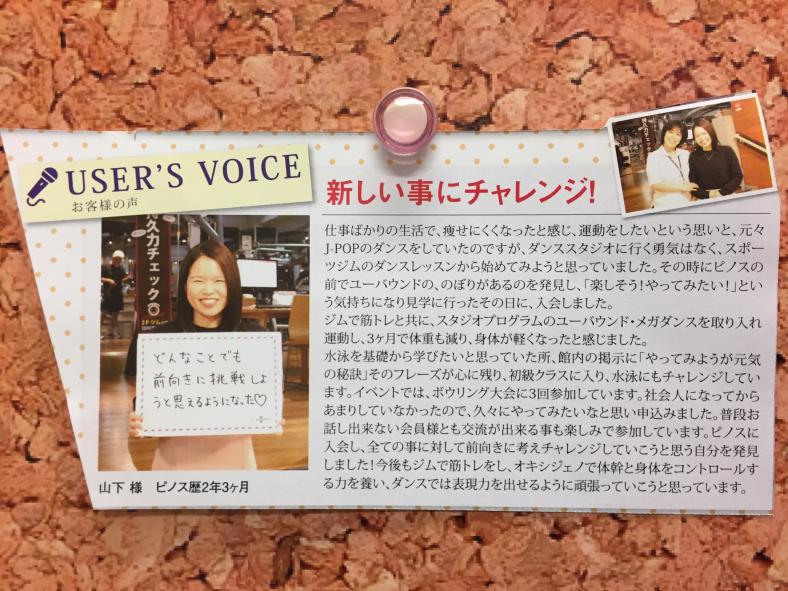 USER'S VOICE
お客様の声
新しい事にチャレンジ!
持久力チェック
どんなことでも
前向きに挑戦しよ
うと思えるようになった♡
山下 様 ピノス歴2年3ヶ月
仕事ばかりの生活で、痩せにくくなったと感じ、運動をしたいという思いと、元々
J-POPのダンスをしていたのですが、ダンススタジオに行く勇気はなく、スポー
ツジムのダンスレッスンから始めてみようと思っていました。その時にピノスの
前でユーバウンドの、のぼりがあるのを発見し、「楽しそう!やってみたい!」とい
う気持ちになり見学に行ったその日に、入会しました。
ジムで筋トレと共に、スタジオプログラムのユーバウンド・メガダンスを取り入れ
運動し、3ヶ月で体重も減り、身体が軽くなったと感じました。
水泳を基礎から学びたいと思っていた所、館内の掲示に「やってみようが元気
の秘訣」そのフレーズが心に残り、初級クラスに入り、水泳にもチャレンジしてい
ます。イベントでは、ボウリング大会に3回参加しています。社会人になってから
あまりしていなかったので、久々にやってみたいなと思い申込みました。普段お
話し出来ない会員様とも交流が出来る事も楽しみで参加しています。ピノスに
入会し、全ての事に対して前向きに考えチャレンジしていこうと思う自分を発見
しました!今後もジムで筋トレをし、オキシジェノで体幹と身体をコントロールす
る力を養い、ダンスでは表現力を出せるように頑張っていこうと思っています。